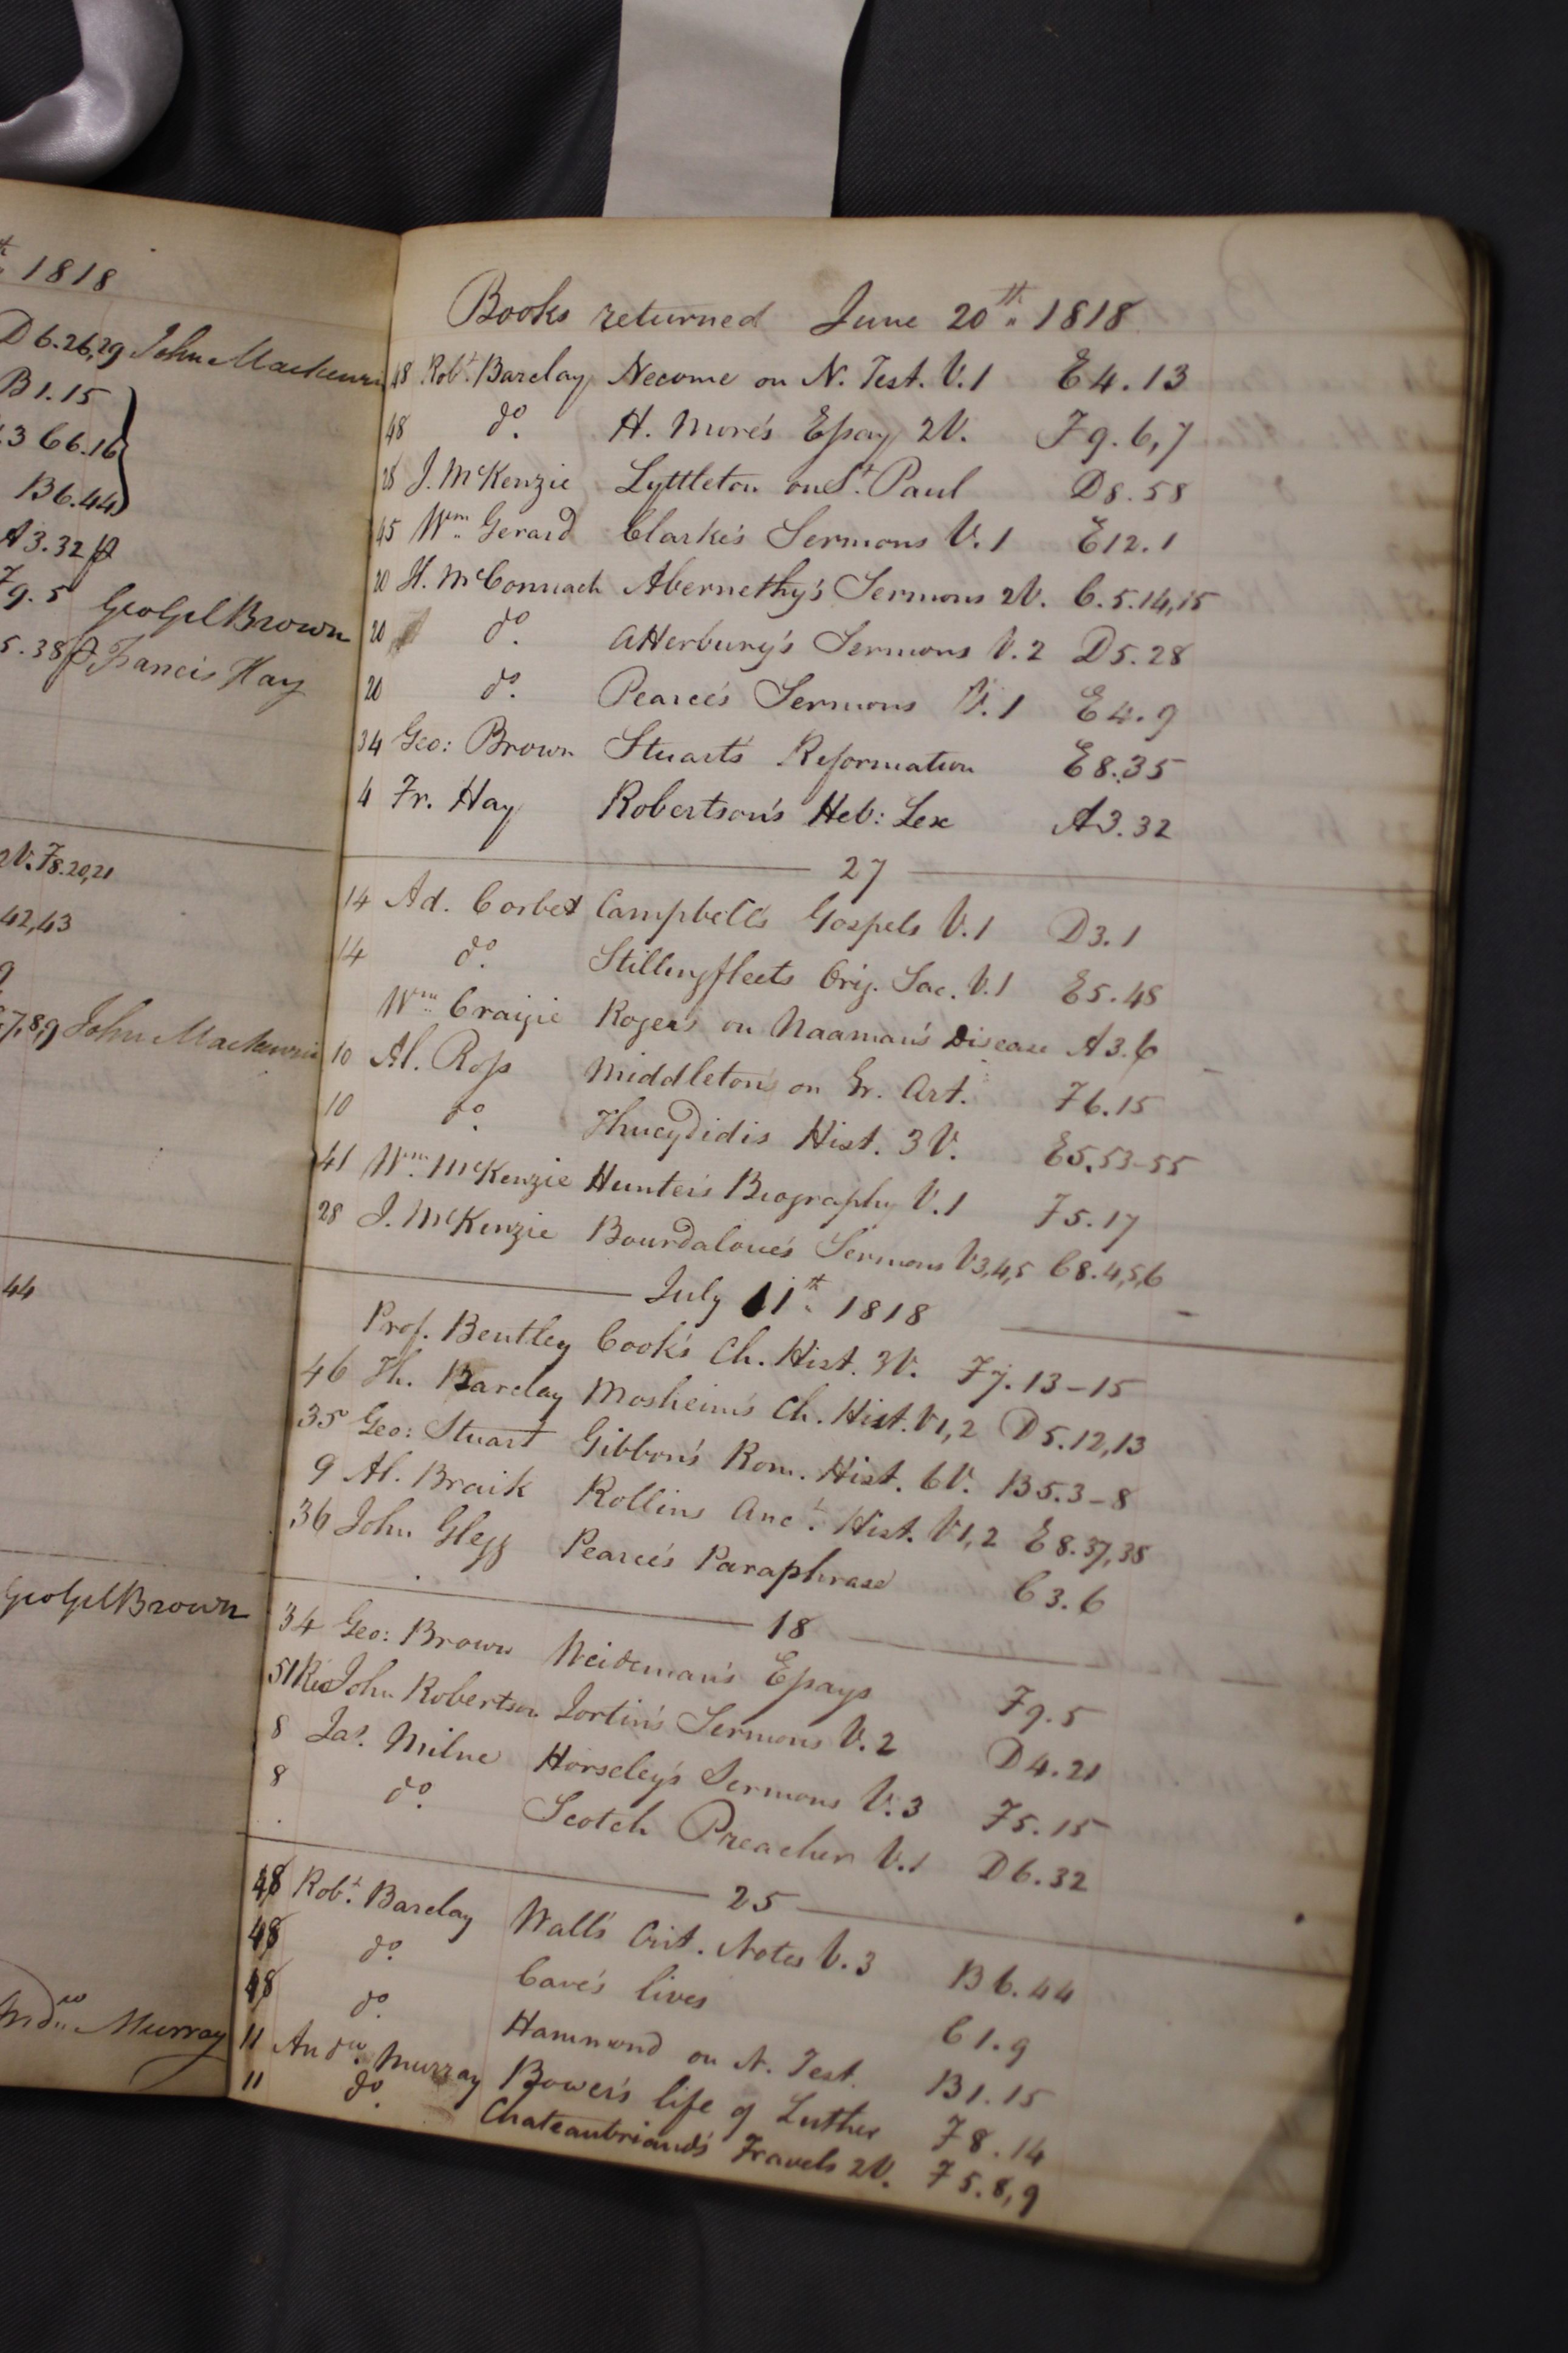 1818
D6.26,29 John Mackenzie
B1.15
.3 C6.16
B6.44
A3.32
F9.5 Geo Gel Brown
5.38 Francis Hay
2V. F8.20,21
42,43
9
7,8,9 John Mackenzie
44
Geo Gel Brown
Andw. Murray
Books returned June 20th. 1818
48 Robt. Barclay Necome on N. Test. V.1 E4.13
48 do. H. More's Essay 2V. F9.6,7
28 J. McKenzie Lyttleton on St. Paul D8.58
45 Wm. Gerard Clarke's Sermons V.1 E12.1
20 H. McConnach Abernethy's Sermons 2V. C.5.14,15
20 do. Atterbury's Sermons V.2 D5.28
20 do. Pearce's Sermons V.1 E4.9
34 Geo: Brown Stuart's Reformation E8.35
4 Fr. Hay Robertson's Heb: Lex A3.32
27
14 Ad. Corbet Campbell's Gospels V.1 D3.1
14 do. Stillingfleets Orig. Sac. V.1 E5.48
Wm. Craigie Roger's on Naaman's Disease A3.6
10 Al. Ross Middleton's on Gr. Art. F6.15
10 do. Thucydidis Hist. 3V. E5.53-55
41 Wm. McKenzie Hunter's Biography V.1 F5.17
28 J. McKenzie Bourdaloue's Sermons V3,4,5 C8.4,5,6
July 11th. 1818
Prof. Bentley Cook's Ch. Hist. 3V. F7.13-15
46 Th. Barclay Mosheim's Ch. Hist. V1,2 D5.12,13
35 Geo: Stuart Gibbon's Rom. Hist. 6V. B5.3-8
9 Al. Braik Rollins Anct. Hist. V1,2 E8.37,38
36 John Glegg Pearce's Paraphrase C3.6
18
34 Geo: Brown Weideman's Essays F9.5
51 John Robertson Jortin's Sermons V.2 D4.21
8 Jas. Milne Horseley's Sermons V.3 F5.15
8 do. Scotch Preacher V.1 D6.32
25
48 Robt. Barclay Wall's Crit. Notes V.3 B6.44
48 do. Cave's lives C1.9
48 do. Hammond on N. Test. B1.15
11 Andw. Murray Bower's life of Luther F8.14
11 do. Chateaubriand's Travels 2V. F5.8,9